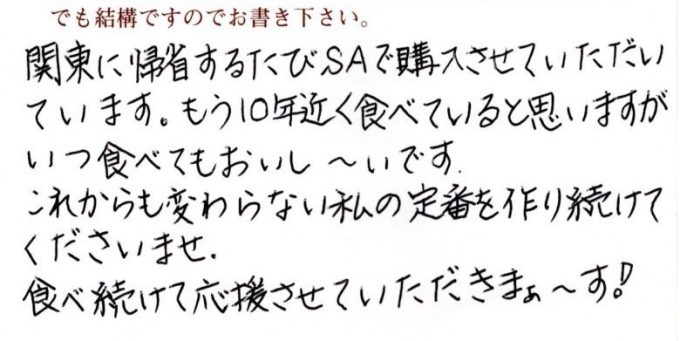 でも結構ですのでお書き下さい。
関東に帰省するたびSAで購入させていただい
ています。もう10年近く食べていると思いますが
いつ食べてもおいし〜いです.
これからも変わらない私の定番を作り続けて
くださいませ.
食べ続けて応援させていただきまぁ〜す!